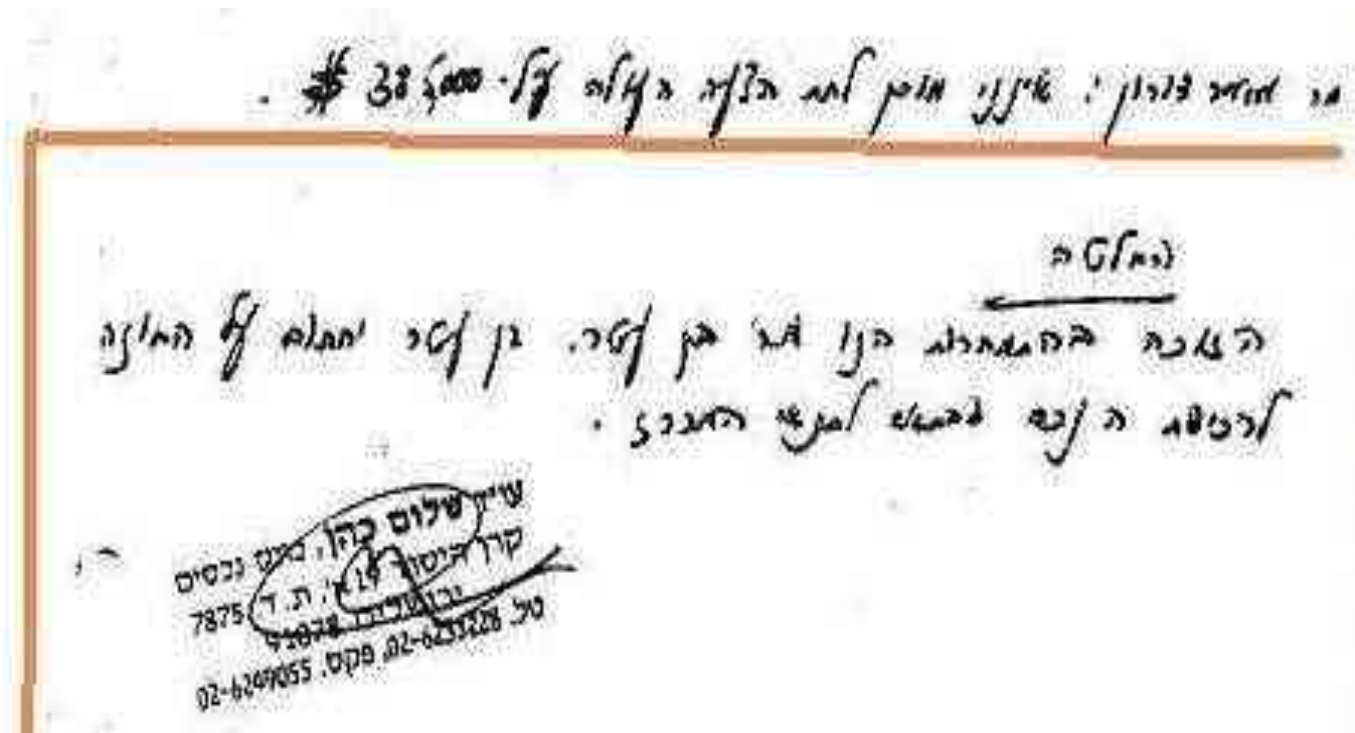 מר שרון: אינני מוכן לתת הצעה העולה על - 385,000 $.
החלטה
הזוכה בהתמחרות הנו מר בן עטר. בן עטר יחתום על החוזה
לרכישת הנכס בהתאם לתנאי המכרז.
עו"ד שלום כהן, כונס נכסים
קרן היסוד 19 א', ת.ד. 7875
ירושלים 91078
טל. 02-6233228, פקס. 02-6249055